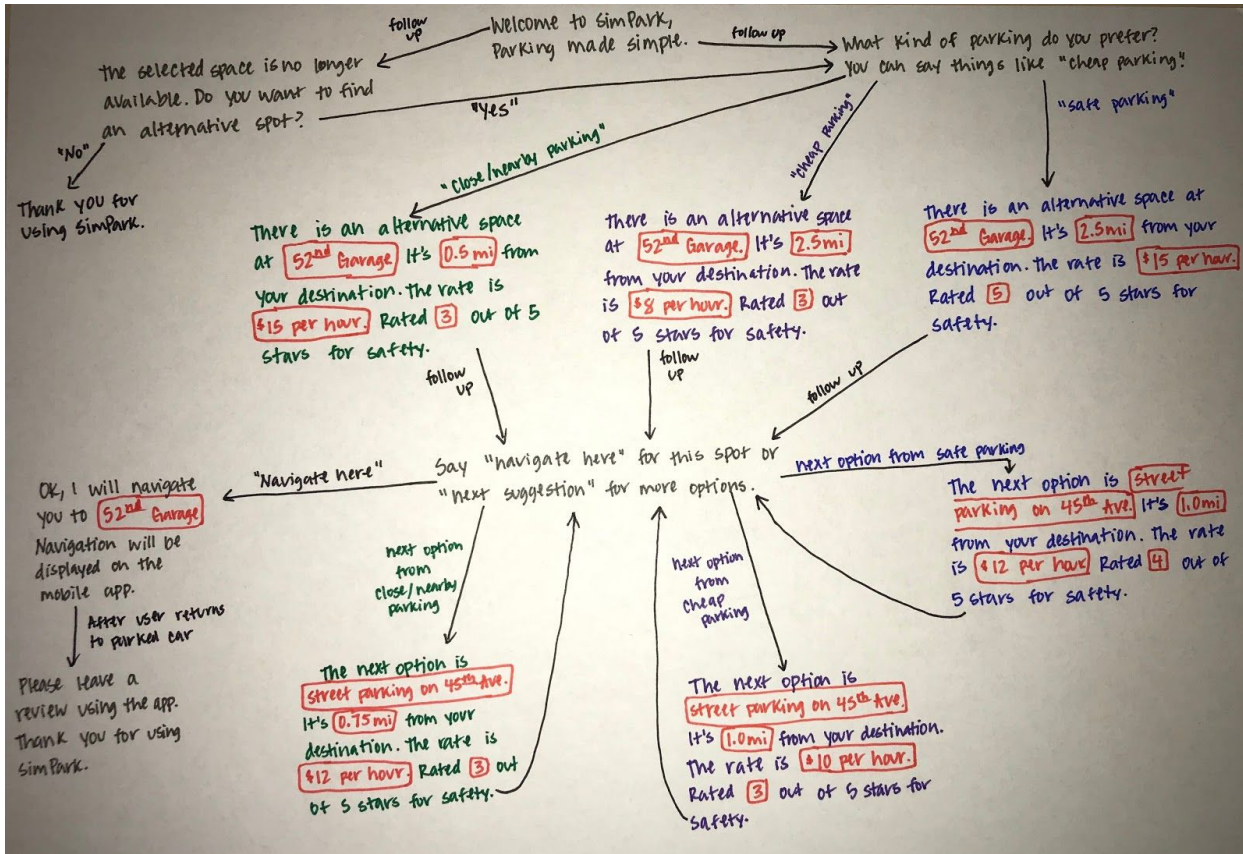 Welcome to SimPark,
Parking made simple.
follow
up
follow up
The selected space is no longer
available. Do you want to find
an alternative spot?
"Yes"
"No"
Thank you for
using SimPark.
What kind of parking do you prefer?
You can say things like "cheap parking".
"Close/nearby parking"
"Cheap parking"
"safe parking"
There is an alternative space
at 52nd Garage. It's 0.5 mi from
your destination. The rate is
$15 per hour. Rated 3 out of 5
stars for safety.
There is an alternative space
at 52nd Garage. It's 2.5mi
from your destination. The rate
is $8 per hour. Rated 3 out
of 5 stars for safety.
There is an alternative space at
52nd Garage. It's 2.5mi from your
destination. The rate is $15 per hour.
Rated 5 out of 5 stars for
safety.
follow
up
follow
up
follow up
Say "navigate here" for this spot or
"next suggestion" for more options.
"Navigate here"
OK, I will navigate
you to 52nd Garage
Navigation will be
displayed on the
mobile app.
After user returns
to parked car
Please leave a
review using the app.
Thank you for using
SimPark.
next option
from
close/nearby
parking
The next option is
street parking on 45th Ave.
It's 0.75 mi from your
destination. The rate is
$12 per hour. Rated 3 out
of 5 stars for safety.
next option
from
cheap
parking
The next option is
street parking on 45th Ave.
It's 1.0mi from your destination.
The rate is $10 per hour.
Rated 3 out of 5 stars for
safety.
next option from safe parking
The next option is street
parking on 45th Ave. It's 1.0mi
from your destination. The rate
is $12 per hour Rated 4 out of
5 stars for safety.